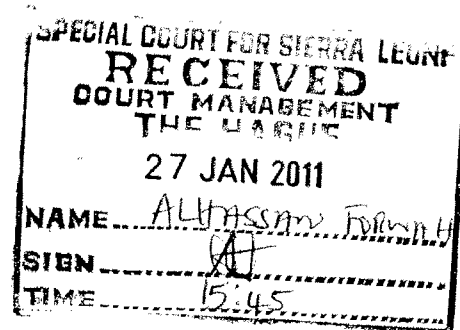 SPECIAL COURT FOR SIERRA LEONE
RECEIVED
COURT MANAGEMENT
THE HAGUE
27 JAN 2011
NAME ALHASSAN FORNAH
SIGN
TIME 15:45